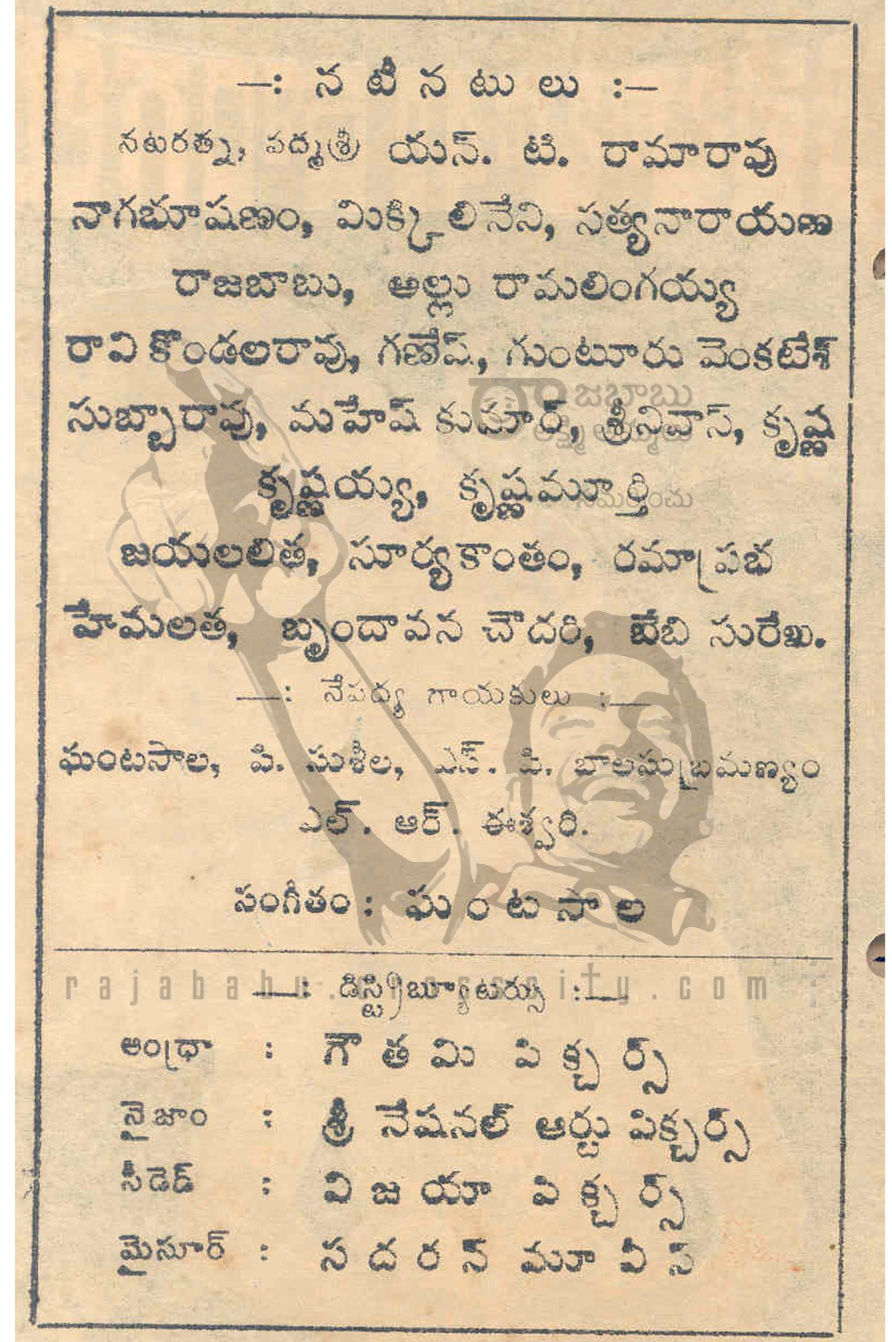 —: నటీనటులు :—
నటరత్న, పద్మశ్రీ యన్. టి. రామారావు
నాగభూషణం, మిక్కిలినేని, సత్యనారాయణ
రాజబాబు, అల్లు రామలింగయ్య
రావి కొండలరావు, గణేష్, గుంటూరు వెంకటేశ్
సుబ్బారావు, మహేష్ కుమార్, శ్రీనివాస్, కృష్ణ
కృష్ణయ్య, కృష్ణమూర్తి
జయలలిత, సూర్యకాంతం, రమాప్రభ
హేమలత, బృందావన చౌదరి, బేబి సురేఖ.
—: నేపథ్య గాయకులు :—
ఘంటసాల, పి. సుశీల, ఎస్. పి. బాలసుబ్రమణ్యం
ఎల్. ఆర్. ఈశ్వరి.
సంగీతం : ఘంటసాల
—: డిస్ట్రిబ్యూటర్సు :—
ఆంధ్రా : గౌతమి పిక్చర్స్
నైజాం : శ్రీ నేషనల్ ఆర్టు పిక్చర్స్
సీడెడ్ : విజయా పిక్చర్స్
మైసూర్ : సదరన్ మూవీస్
రాజబాబు